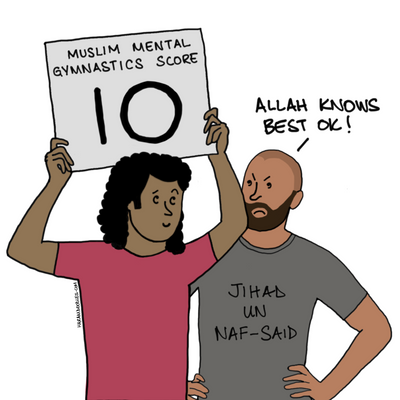 MUSLIM MENTAL
GYMNASTICS SCORE
10
ALLAH KNOWS
BEST OK!
JIHAD
UN
NAF-SAID